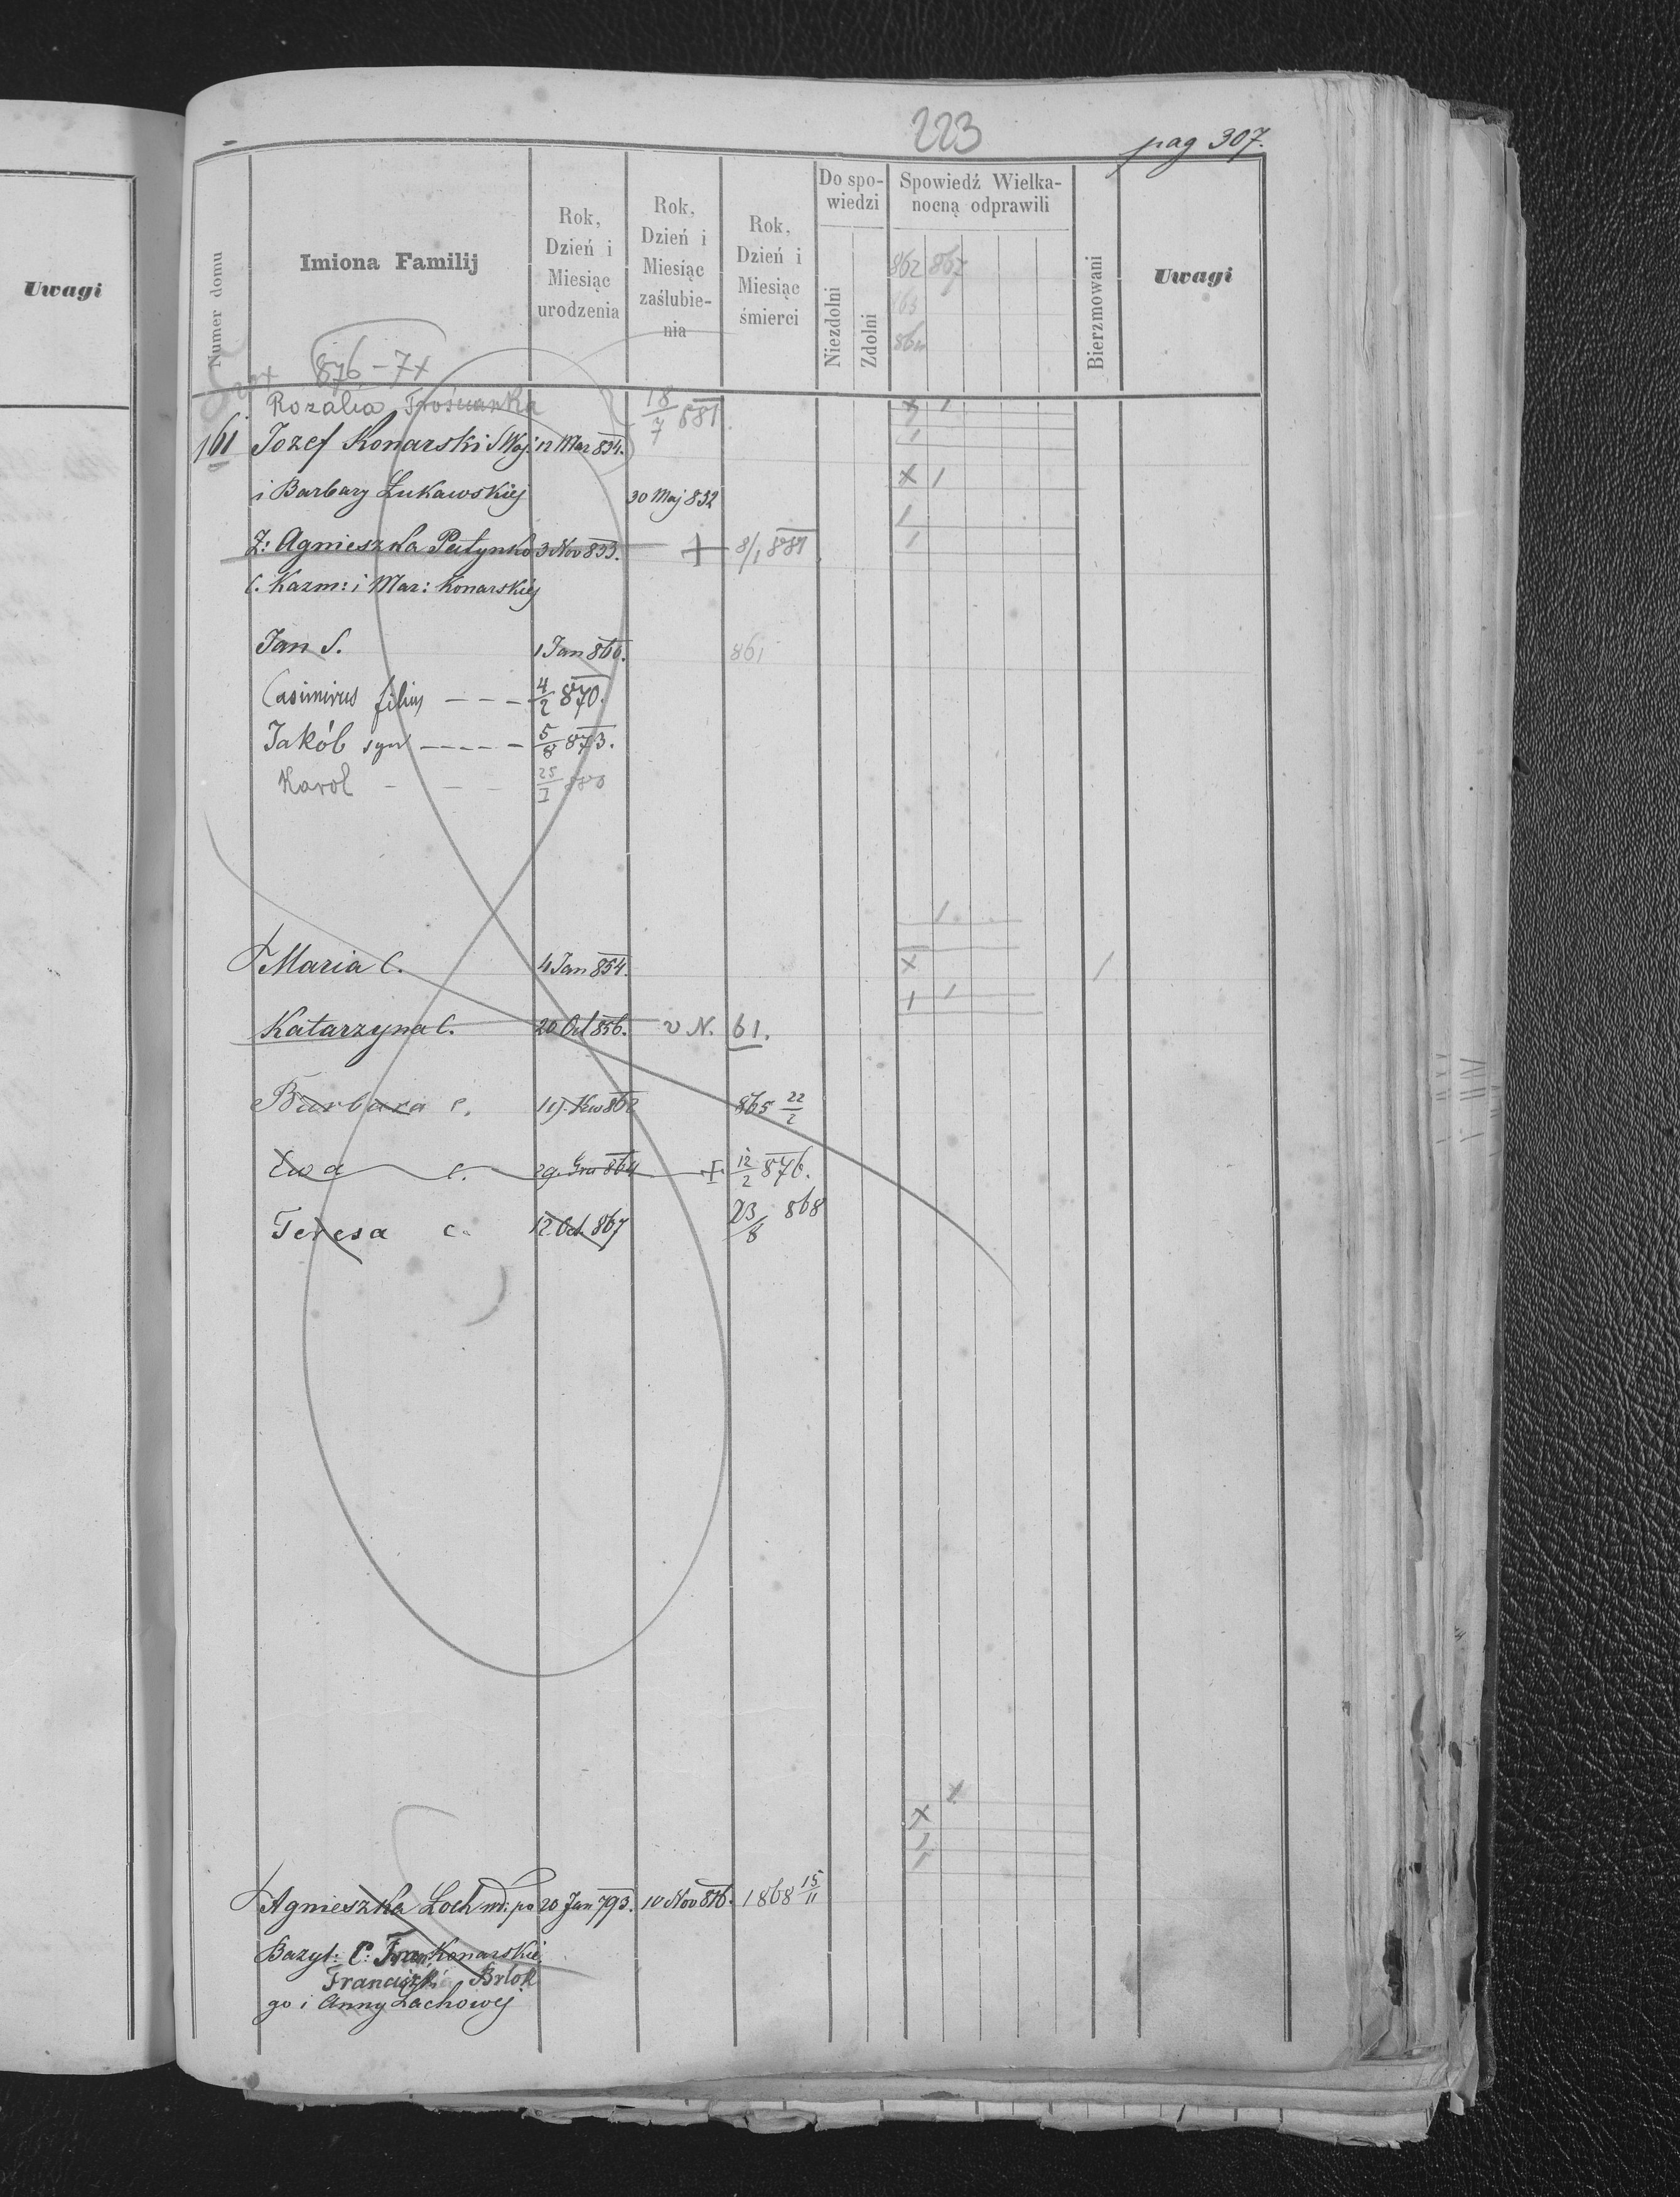 223
pag 307.
Uwagi
Numer domu
Imiona Familij
Rok, Dzień i Miesiąc urodzenia
Rok, Dzień i Miesiąc zaślubie-nia
Rok, Dzień i Miesiąc śmierci
Do spo-wiedzi
Niezdolni
Zdolni
Spowiedź Wielka-nocną odprawili
862 867
863
864
Bierzmowani
Uwagi
876 - 7+
Rozalia 18/7 881
161 Jozef Konarski S Woj: 12 Mar 834.
i Barbary Łukawskiej 30 Maj 832
Ż: Agnieszka Patynko 3 Nov 833. + 8/1 881
C. Kazm: i Mar: Konarskiej
Jan S. 1 Jan 860. 861
Casimirus filius - - - 4/2 870.
Jakób syn - - - - - 5/8 873.
Karol - - - 25/I 880
Maria C. 4 Jan 854.
Katarzyna C. 20 Oct 856. v N. 61.
Barbara C. 19. Kw 862 865 22/2
Ewa C. 29. Gru 864 + 12/2 876.
Teresa C. 12 Oct. 867 23/8 868
Agnieszka Loch wd: po 20 Jan 793. 10 Nov 816. 1868 15/11
Bazyl: C: Fran Konarskie
Franciszka Brlok
go i Anny Lachowej